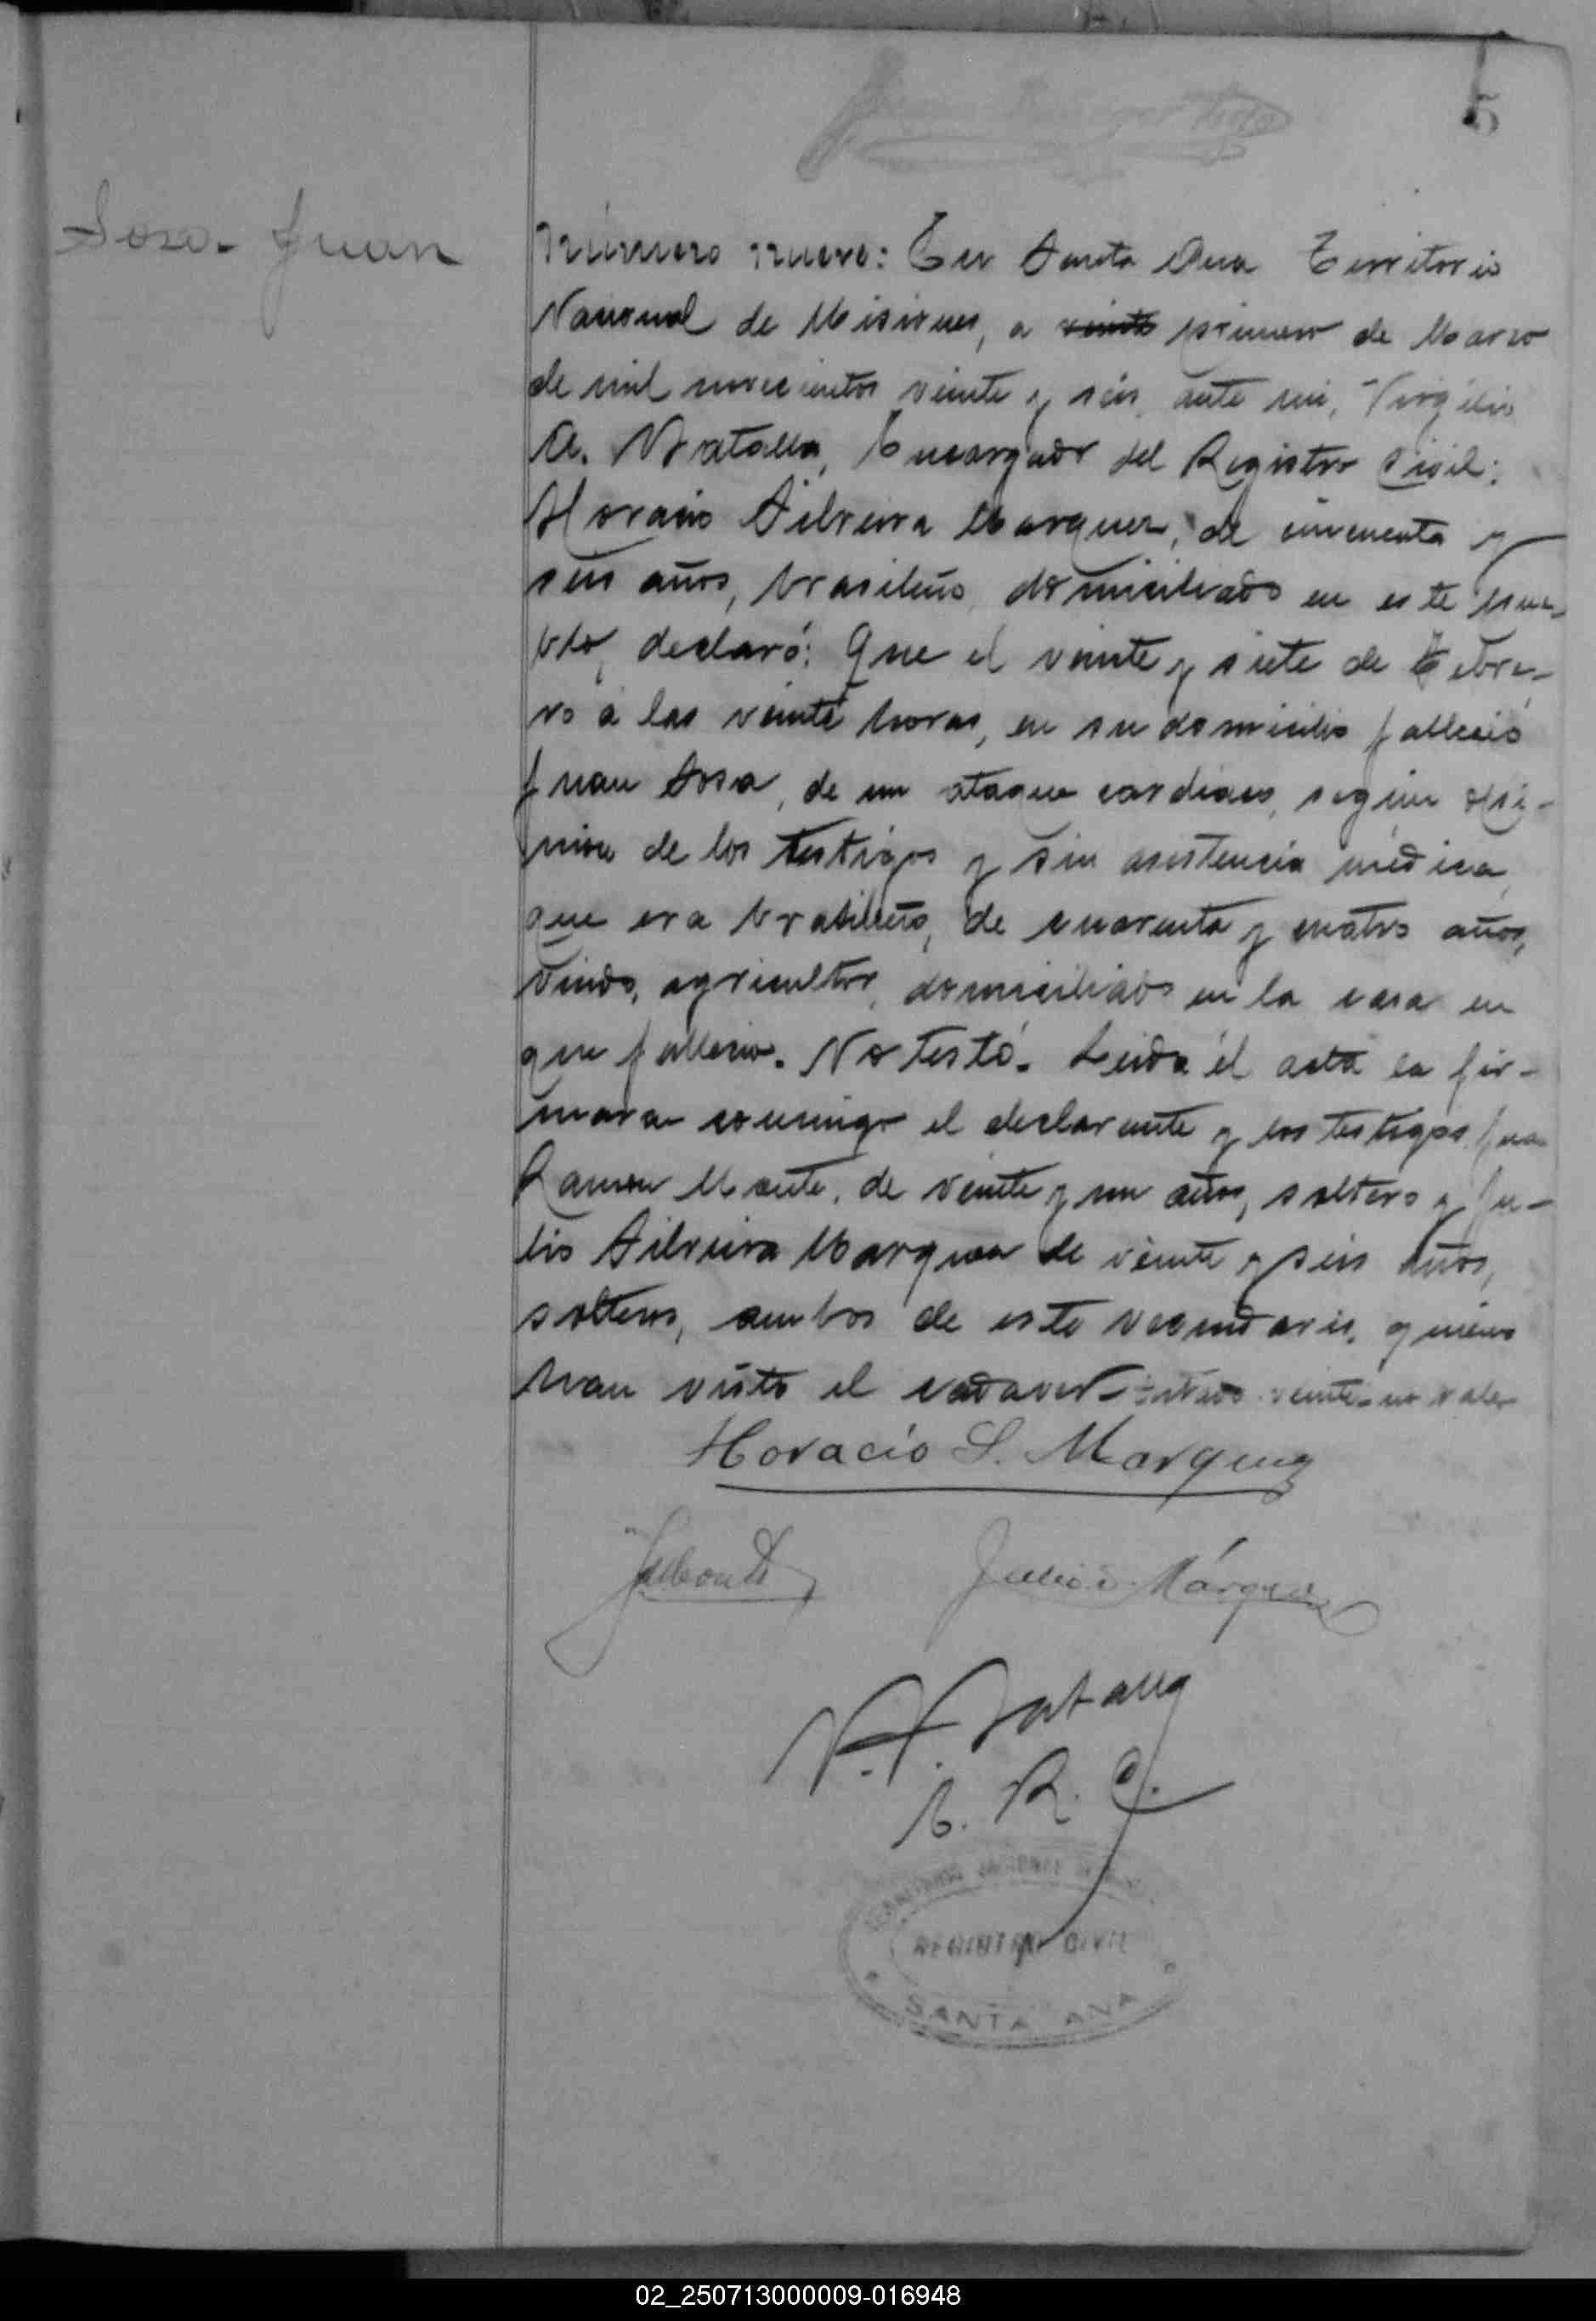 5
Sosa - Juan
Número nueve: En Santa Ana Territorio
Nacional de Misiones, a veinte primero de Marzo
de mil novecientos veinte y seis, ante mi, Virgilio
A. Matalla, Encargado del Registro Civil:
Horacio Silveira Marquez, de cincuenta y
seis años, brasileño, domiciliado en este pue-
blo, declaró: Que el veinte y siete de Febre-
ro á las veinte horas, en su domicilio falleció
Juan Sosa, de un ataque cardiaco, según opi-
nion de los testigos y sin asistencia médica,
que era brasileño, de cuarenta y cuatro años,
viudo, agricultor, domiciliado en la casa en
que falleció. No testó. Leida el acta la fir-
maron conmigo el declarante y los testigos Juan
Ramon, de veinte y un años, soltero y Ju-
lio Silveira Marquez de veinte y seis años,
solteros, ambos de este vecindario, quienes
han visto el cadaver - testado veinte - no vale
Horacio S. Marquez
Julio S. Márquez
E. R. C.
REGISTRO CIVIL
SANTA ANA
02_250713000009-016948